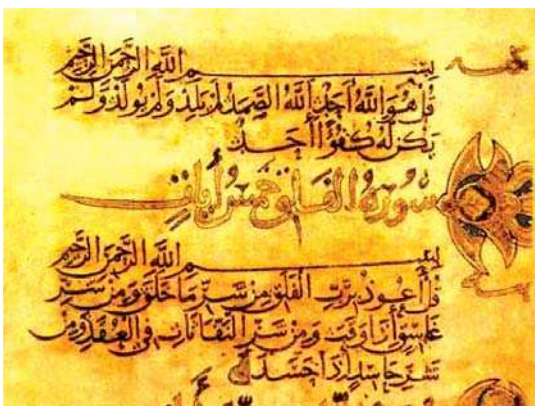 بسم الله الرحمن الرحيم
قل هو الله أحد الله الصمد لم يلد ولم يولد ولم
يكن له كفوا أحد
سورة الفلق خمس آيات
بسم الله الرحمن الرحيم
قل أعوذ برب الفلق من شر ما خلق ومن شر
غاسق إذا وقب ومن شر النفاثات في العقد ومن
شر حاسد إذا حسد